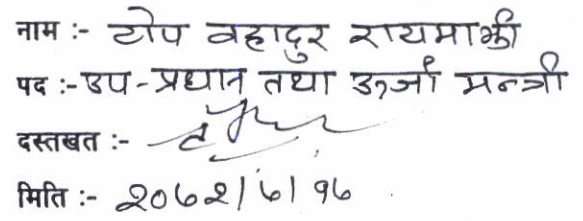 नाम :- टोप वहादुर रायमाझी
पद :- उप-प्रधान तथा ऊर्जा मन्त्री
दस्तखत :-
मिति :- २०७२/७/१७